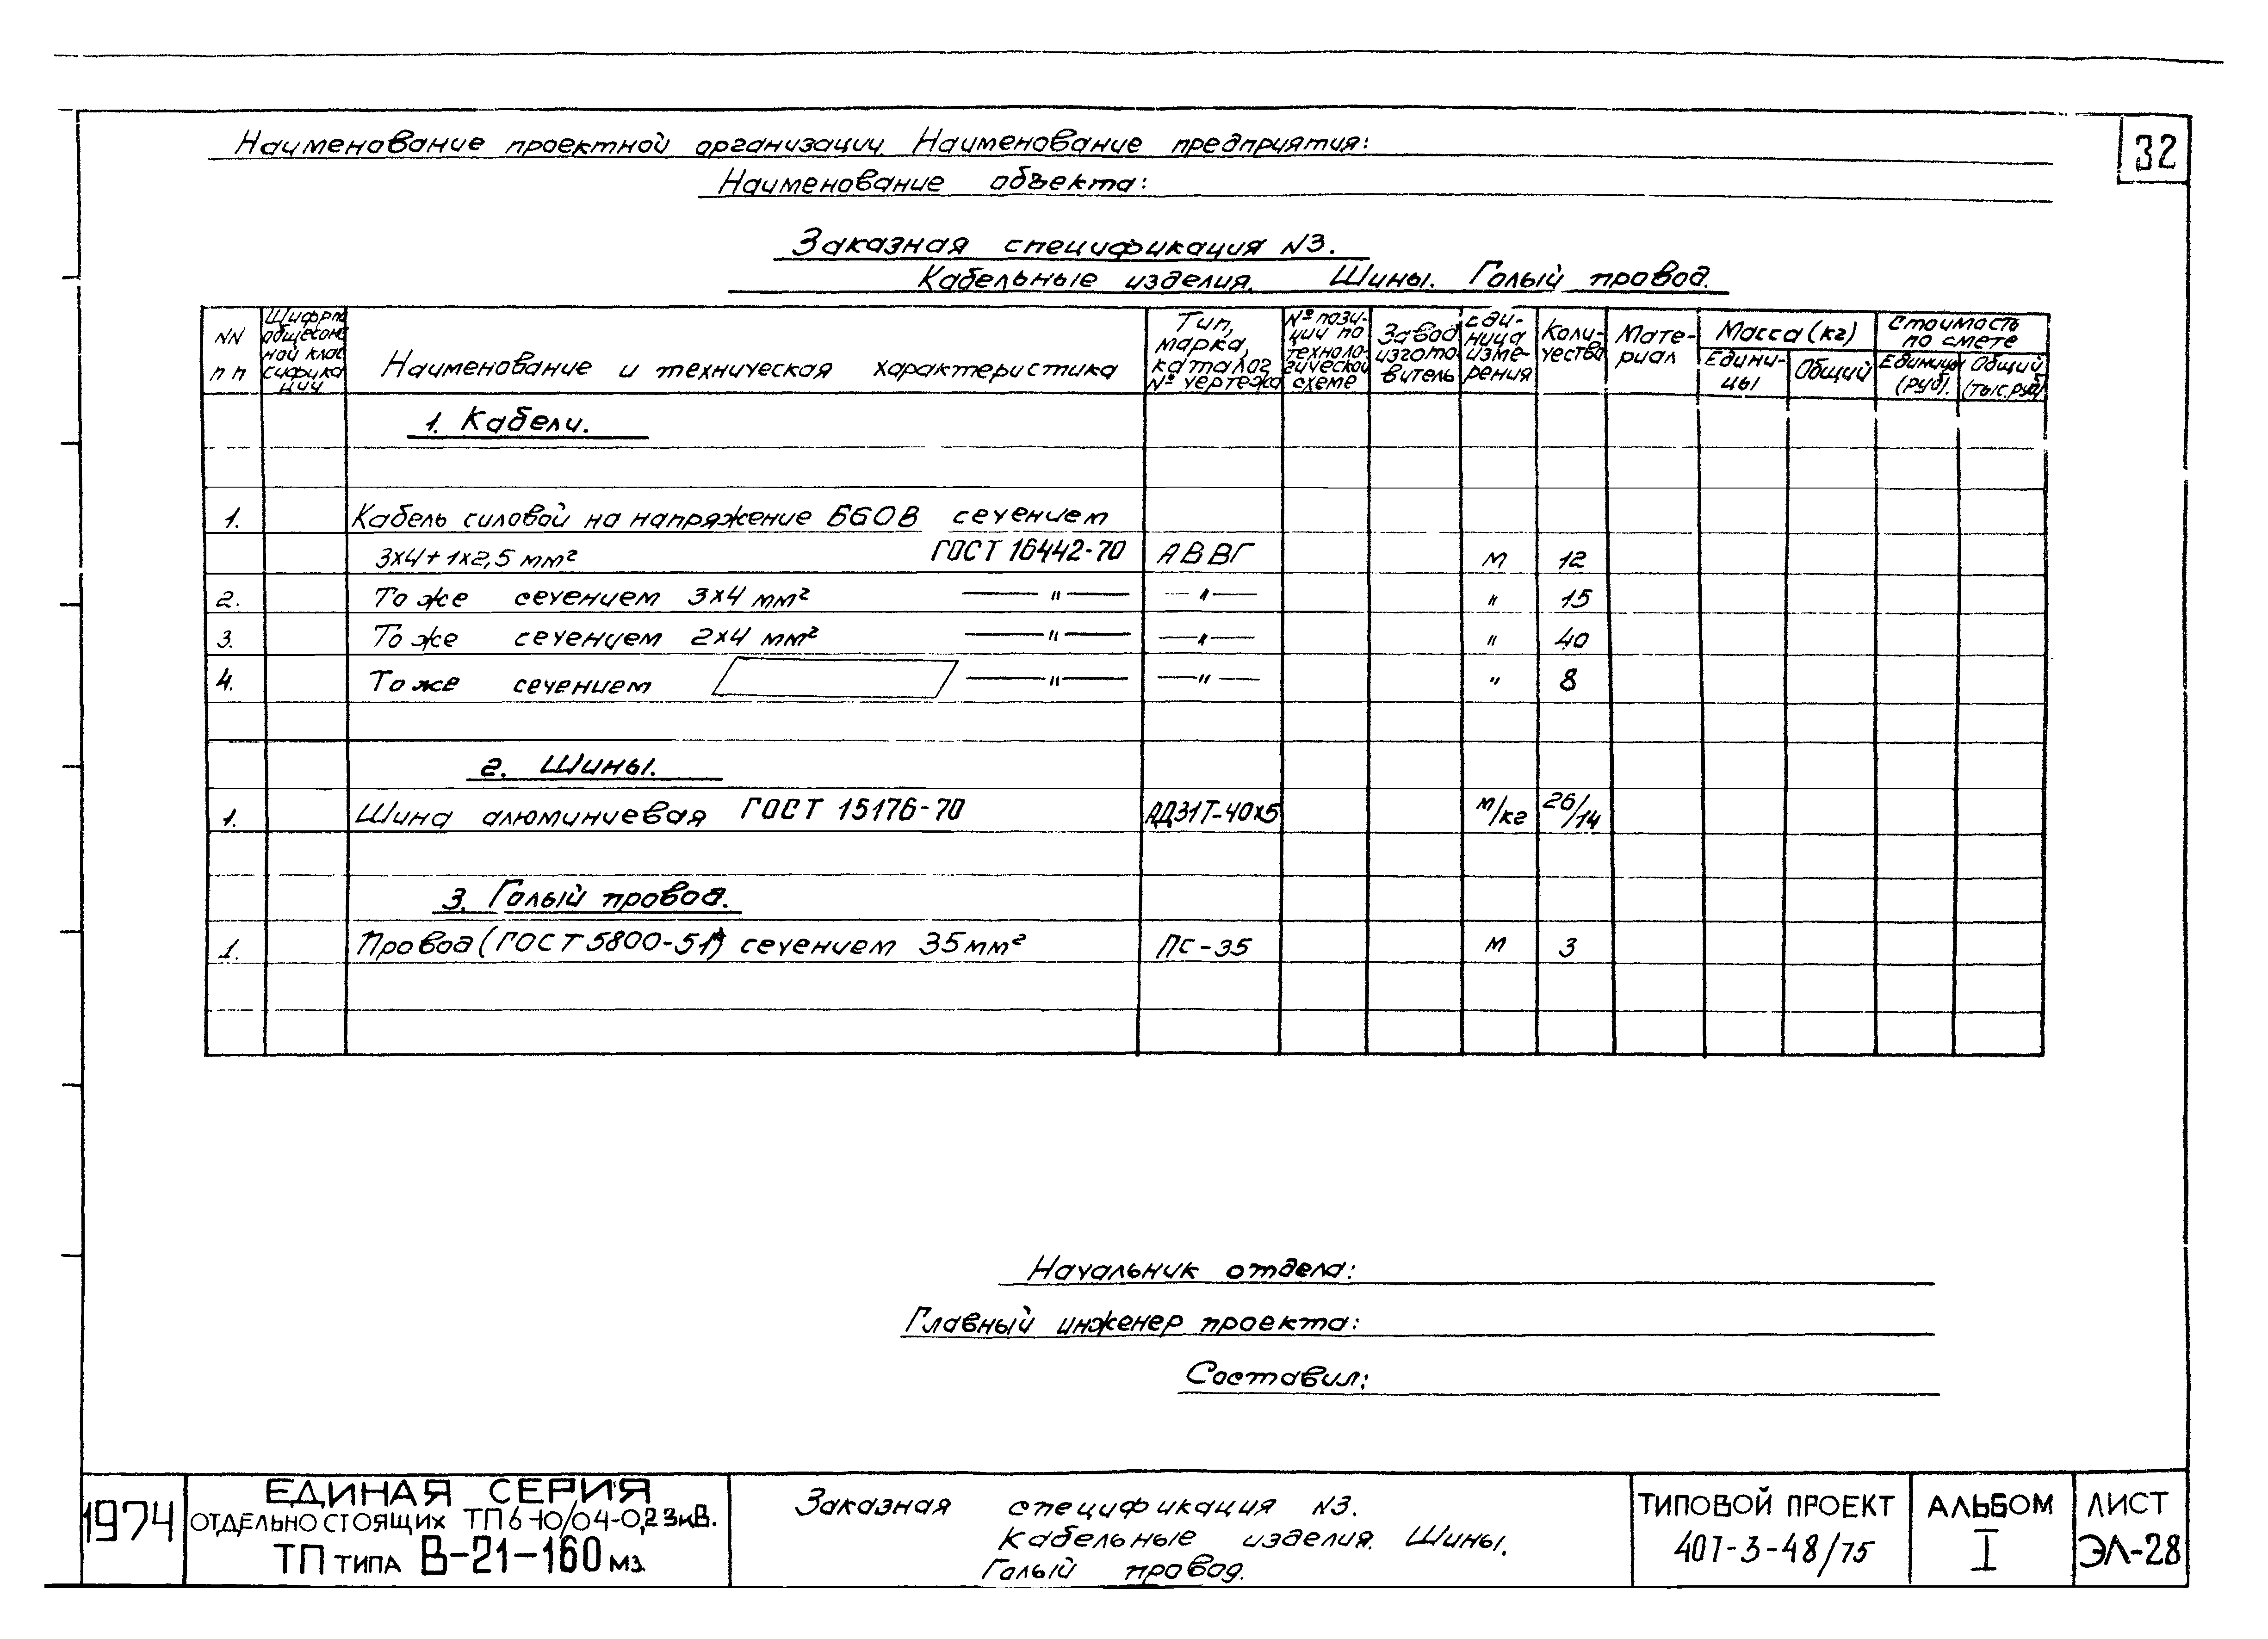 32
Наименование проектной организации. Наименование предприятия:
Наименование объекта:
Заказная спецификация N3.
Кабельные изделия. Шины. Голый провод.
NN пп
Шифр по общесоюзной классификации
Наименование и техническая характеристика
Тип, марка, каталог № чертежа
№ позиции по технологической схеме
Завод изготовитель
Единица измерения
Количества
Материал
Масса (кг)
Единицы
Общий
Стоимость по смете
Единицы (руб).
Общий (тыс. руб)
1. Кабели.
1. Кабель силовой на напряжение 660В сечением
3х4+1х2,5 мм² ГОСТ 16442-70 АВВГ м 12
2. То же сечением 3х4 мм² — " — — " — " 15
3. То же сечением 2х4 мм² — " — — " — " 40
4. То же сечением — " — — " — " 8
2. Шины.
1. Шина алюминиевая ГОСТ 15176-70 АД31Т-40х5 м/кг 26/14
3. Голый провод.
1. Провод (ГОСТ 5800-51) сечением 35мм² ПС-35 м 3
Начальник отдела:
Главный инженер проекта:
Составил:
1974
ЕДИНАЯ СЕРИЯ
ОТДЕЛЬНО СТОЯЩИХ ТП 6-10/04-0,23кВ.
ТП ТИПА В-21-160 М3.
Заказная спецификация N3.
Кабельные изделия. Шины.
Голый провод.
ТИПОВОЙ ПРОЕКТ
407-3-48/75
АЛЬБОМ
I
ЛИСТ
ЭЛ-28